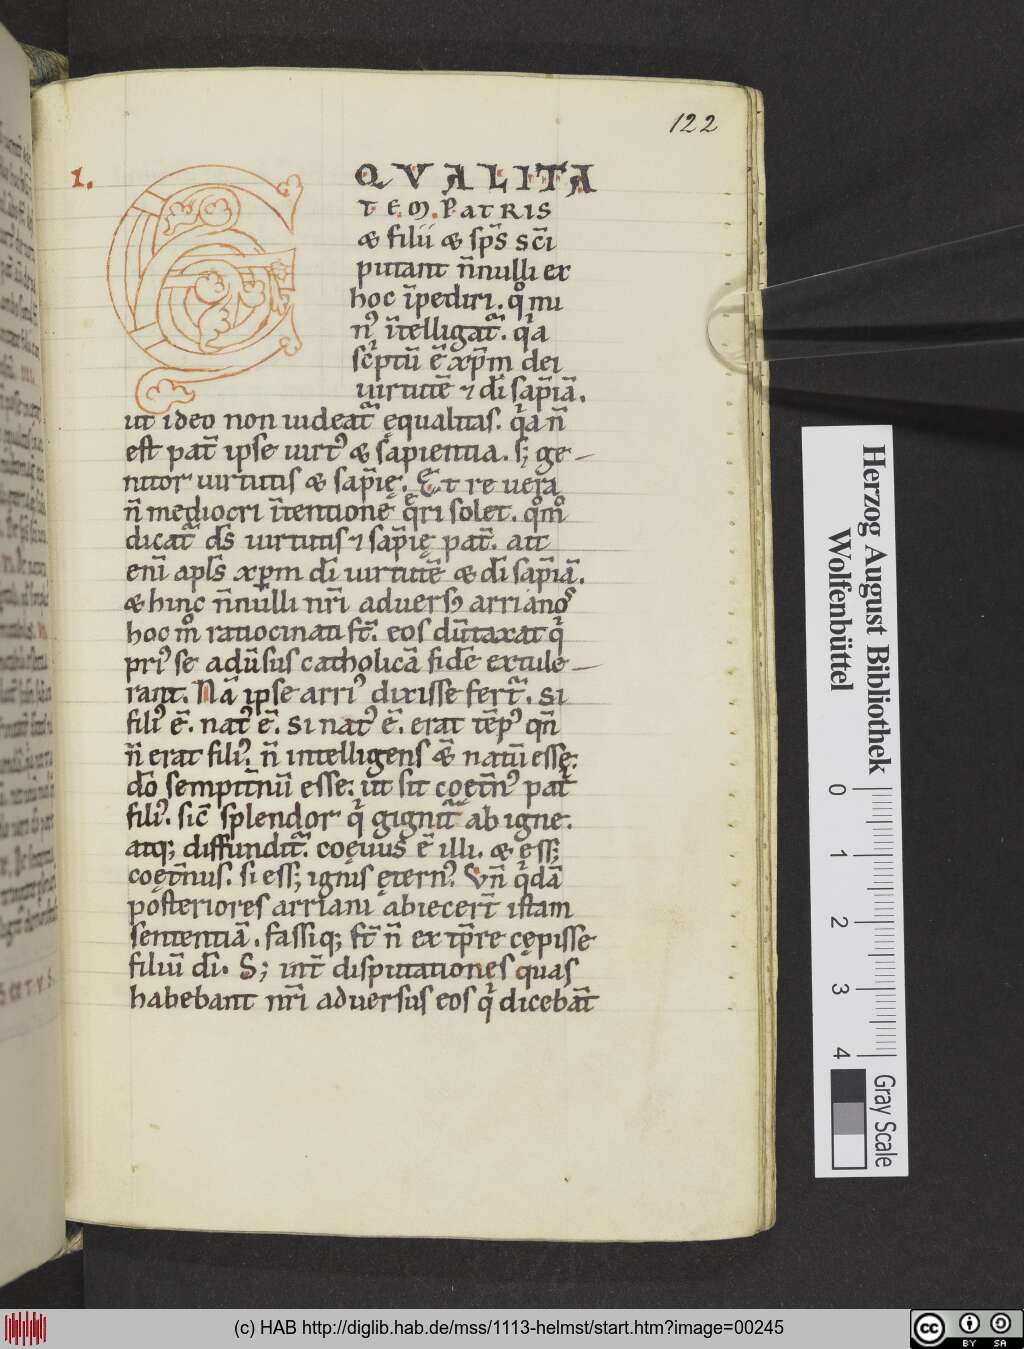 122
1.
E QVALITA
TEM. PatRIS
& filii & sp̄s sc̄i
putant n̄nulli ex
hoc īpediri. qͦ mi
nꝰ ītelligat᷑. qͥa
sc͛ptū ē xp̄m dei
uirtutē ⁊ dī sap̄iā.
ut ideo non uideat᷑ ęqualitas. qͥa n̄
est pat̄ ipse uirtꝰ & sapientia. s; ge-
nitor uirtutis & sap̄ię. Et re uera
n̄ mediocri ītentione q̨ri solet. qͦmͦ
dicat᷑ ds̄ uirtutis ⁊ sap̄ię pat̄. ait
enī apl̄s xp̄m dī uirtutē & dī sap̄iā.
& hinc n̄nulli nr̄i aduersꝰ arrianos
hoc mͦ ratiocinati st̄. eos dūtaxat qͥ
priꝰ se aduͥsus catholicā fidē extule-
rant. Nā ipse arriꝰ dixisse fert᷑. si
filiꝰ ē. natꝰ ē. Si natꝰ ē. erat tēpꝰ qn̄
n̄ erat filiꝰ. n̄ intelligens &̄ natū esse:
dō sempit̄nū esse: ut sit coęt̄nꝰ pat̄
filiꝰ. sic̄ splendor qͥ gignit᷑ ab igne.
atq; diffundit᷑. coęuus ē illi. & ess;
coęt̄nus. si ess; ignis ęternꝰ. Vn̄ qͥdā
posteriores arriani abiecer̄t istam
sententiā. fassiq; st̄ n̄ ex tp̄re cępisse
filiū dī. S; int̄ disputationes quas
habebant nr̄i aduersus eos qͥ dicebāt
Herzog August Bibliothek
Wolfenbüttel
0 1 2 3 4
Gray Scale
(c) HAB http://diglib.hab.de/mss/1113-helmst/start.htm?image=00245
cc BY SA